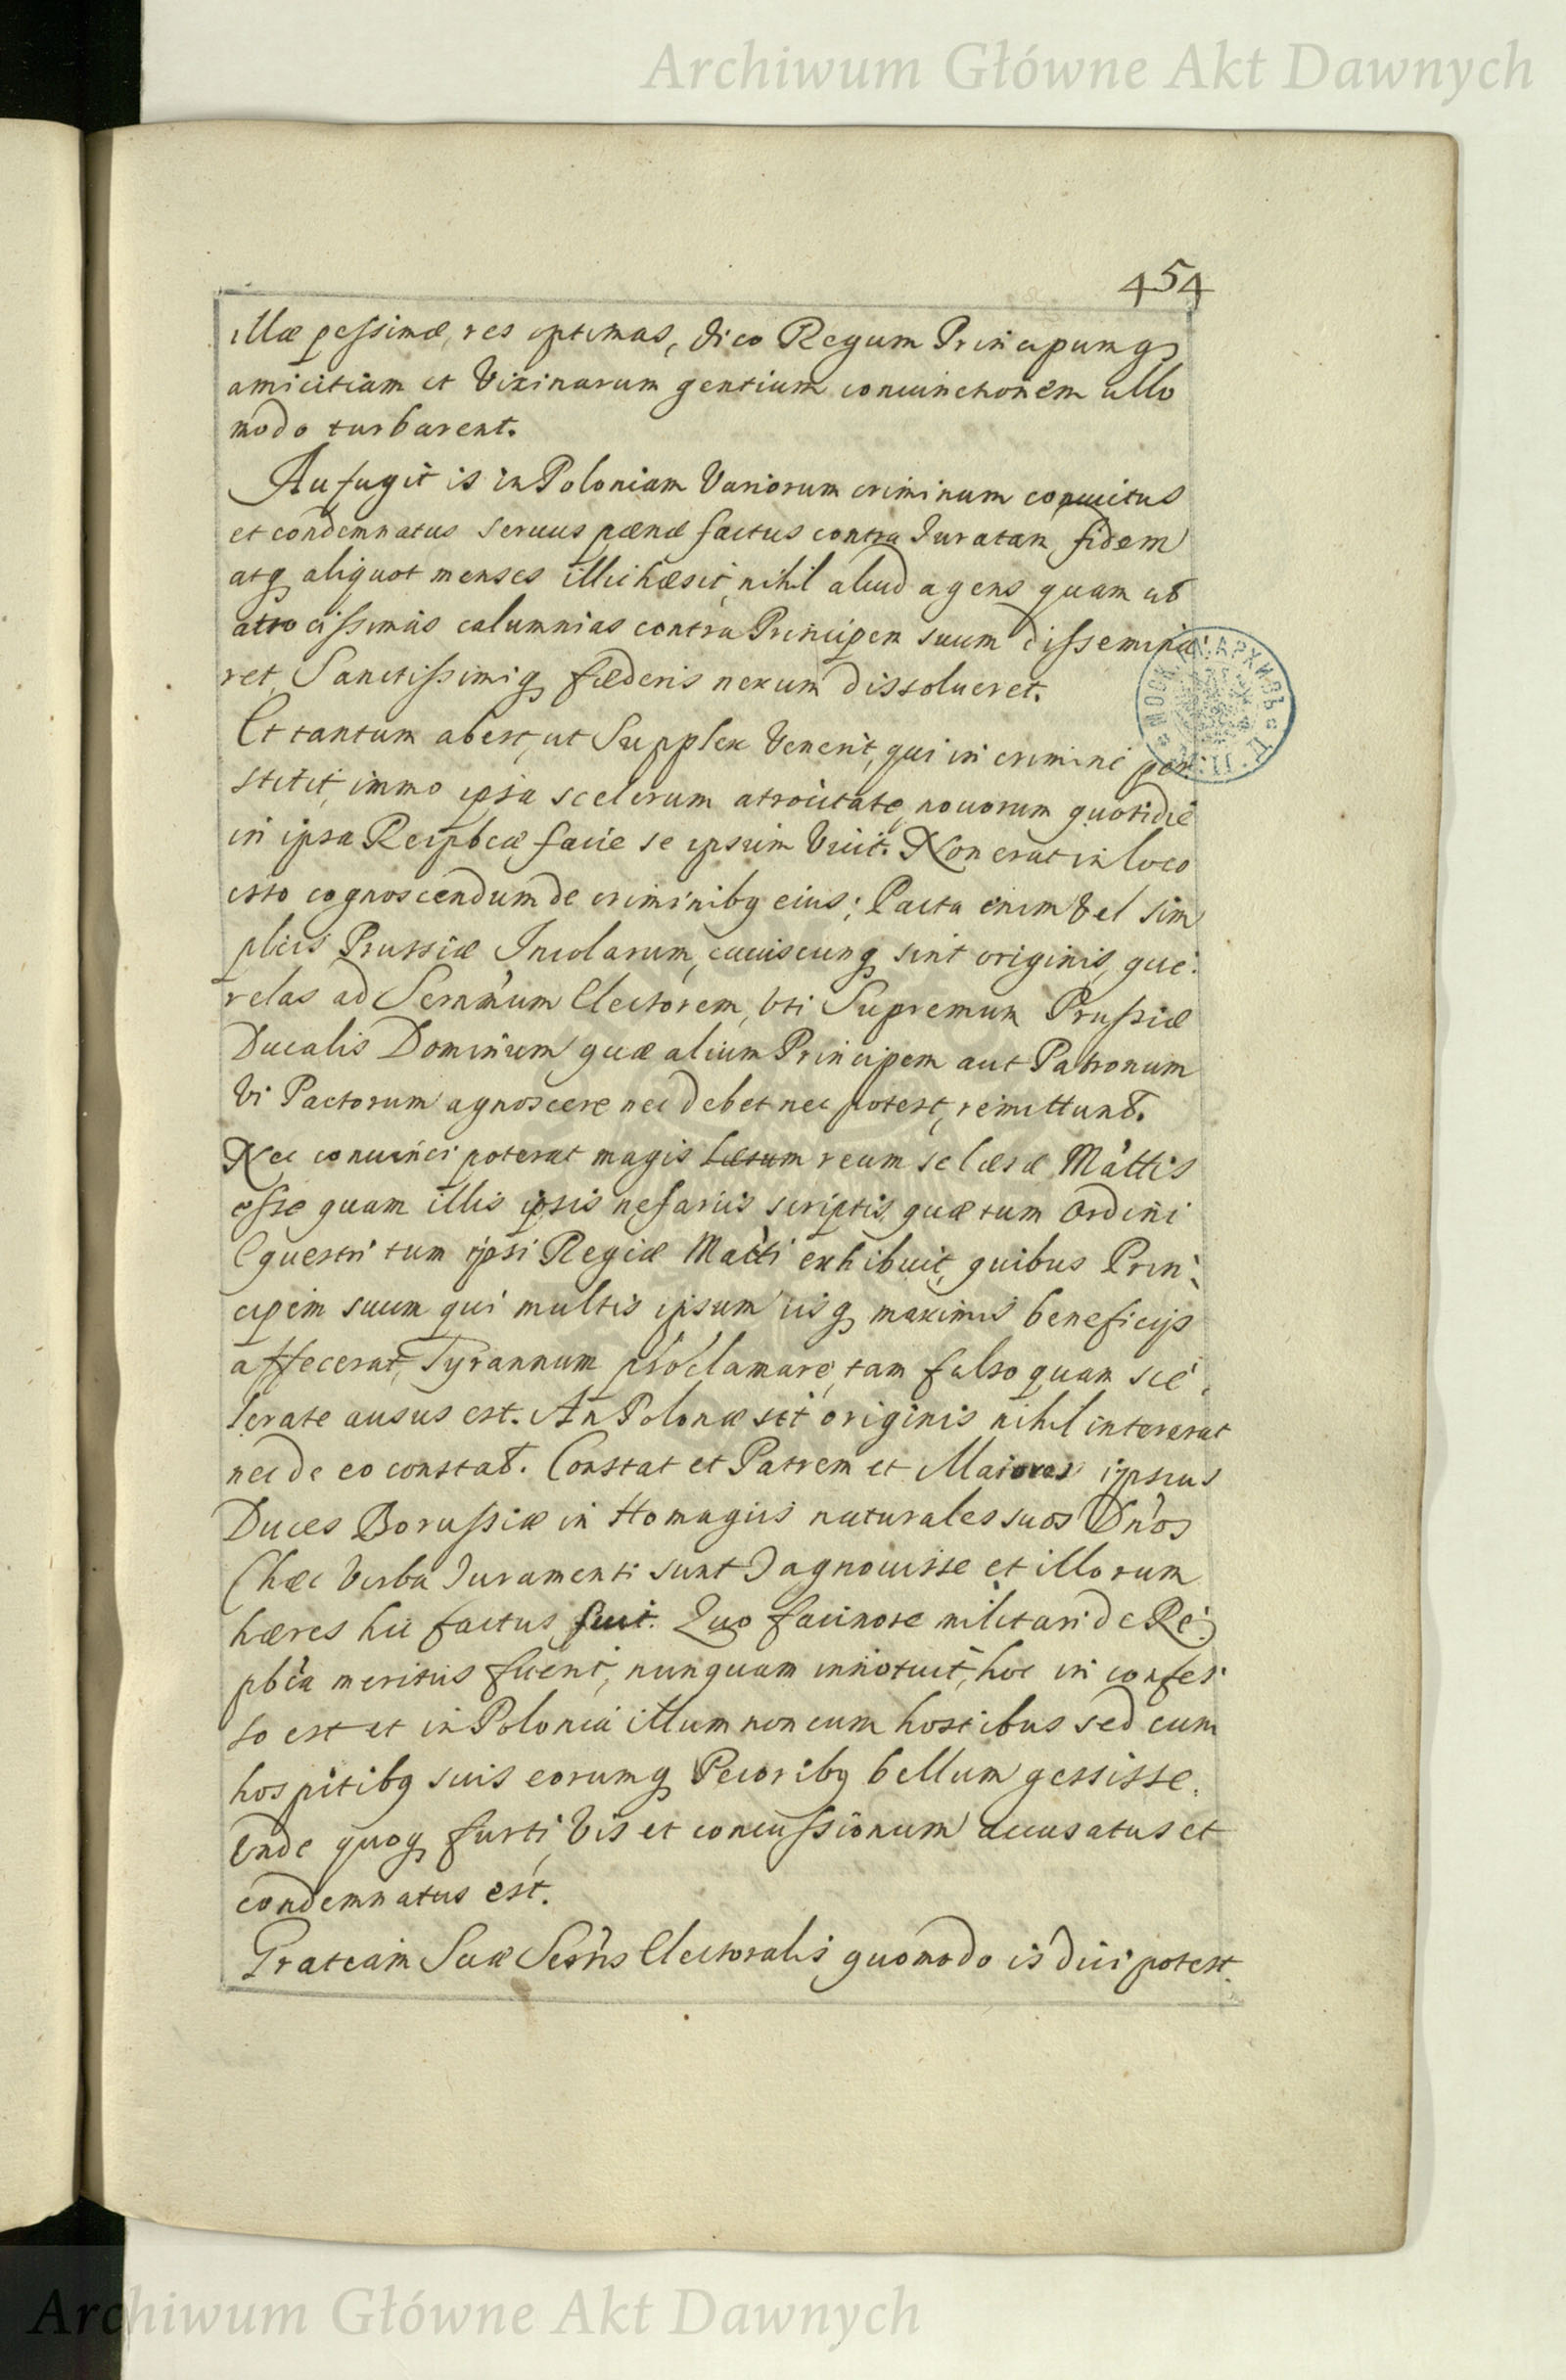 Archiwum Główne Akt Dawnych
454
illæ pessimæ, res optimas, dico Regum Principumq
amicitiam et Vicinarum gentium coniunctionem ullo
modo turbarent.
Aufugit is in Poloniam Variorum criminum conuictus
et condemnatus seruus pœnæ factus contra Juratam fidem
atq aliquot menses illic hæsit, nihil aliud agens quam ut
atrocissimas calumnias contra Principem suum dissemina
ret, Sanctissimiq fœderis nexum dissolueret.
Et tantum abest, ut Supplex Venerit, qui in crimine per
stitit, immo ipsa scelerum atrocitate nouorum quotidie
in ipsa Reipbcæ facie se ipsum Vicit. Non erat in loco
isto cognoscendum de criminibq eius; Pacta enim vel sim
plicis Prussiæ Incolarum, cuiuscunq sint originis, que:
relas ad Sernmum Electorem, Vti Supremum Prussiæ
Ducalis Dominum quæ alium Principem aut Patronum
Vi Pactorum agnoscere nec debet nec potest, remittunt.
Nec conuinci poterat magis læsum reum se læsæ Mattis
esse quam illis ipsis nefariis scriptis, quæ tum Ordini
Equestri tum ipsi Regiæ Matti exhibuit, quibus Prin:
cipem suum qui multis ipsum iisq maximis beneficijs
affecerat, Tyrannum proclamare, tam falso quam sce:
lerate ausus est. An Polonæ sit originis nihil intererat
nec de eo constat. Constat et Patrem et Maiores ipsius
Duces Borussiæ in Homagiis naturales suos Dnos
(hæc Verba Juramenti sunt) agnouisse et illorum
hæres hic factus fuit. Quo facinore militari de Re:
pbca meritus fuerit, nunquam innotuit, hoc in confes
so est et in Polonia illum non cum hostibus sed cum
hospitibq suis eorumq Pecoribq bellum gessisse.
Unde quoq furti, Vis et concussionum accusatus et
condemnatus est.
Gratiam Suæ Sertis Electoralis quomodo is dici potest
Archiwum Główne Akt Dawnych